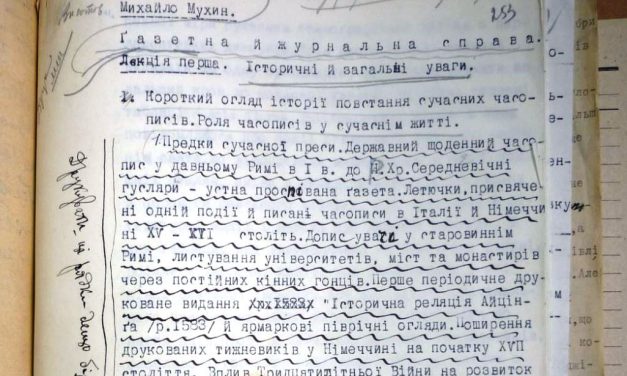 Михайло Мухин.
253
Ґазетна й журнальна справа.
Лекція перша. Історичні й загальні уваги.
1. Короткий огляд історії повстання сучасних часо-
писів.Роля часописів у сучаснім життí.
Предки сучасної преси.Державний щоденний часо-
пис у давньому Римі в І в. до Р.Хр.Середневічні
гуслярі - устна проспівана ґазета.Летючки,присвяче-
ні одній події й писані часописи в Італії й Німеччи-
ні XV - XVI століть.Дописувачі у старовиннім
Римі, листування університетів, міст та монастирів
через постійних кінних гонців.Перше періодичне дру-
коване видання "Історична реляція Айцін-
ґа /р.1583/ й ярмаркові піврічні огляди.Поширення
друкованих тижневиків у Німеччині на початку XVII
століття. Вплив Тридцятилітньої Війни на розвиток
Друкувати ці рядки